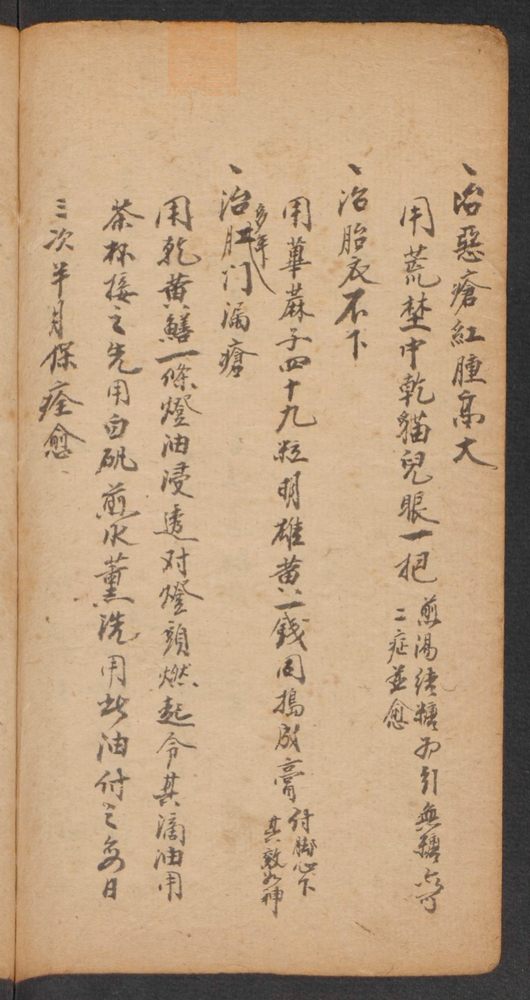 、治惡瘡紅腫高大
用荒埜中乾貓兒眼一把 煎湯 糖為引無糖亦可
二症並愈
、治胎衣不下
用萆蔴子四十九粒明雄黃一錢同搗成膏 付脚心下
其效如神
、治多年肛门漏瘡
用乾黃鱔一條燈油浸透对燈頭燃起令其滴油用
茶杯接之先用白矾煎水薰洗用此油付之每日
三次半月保痊愈